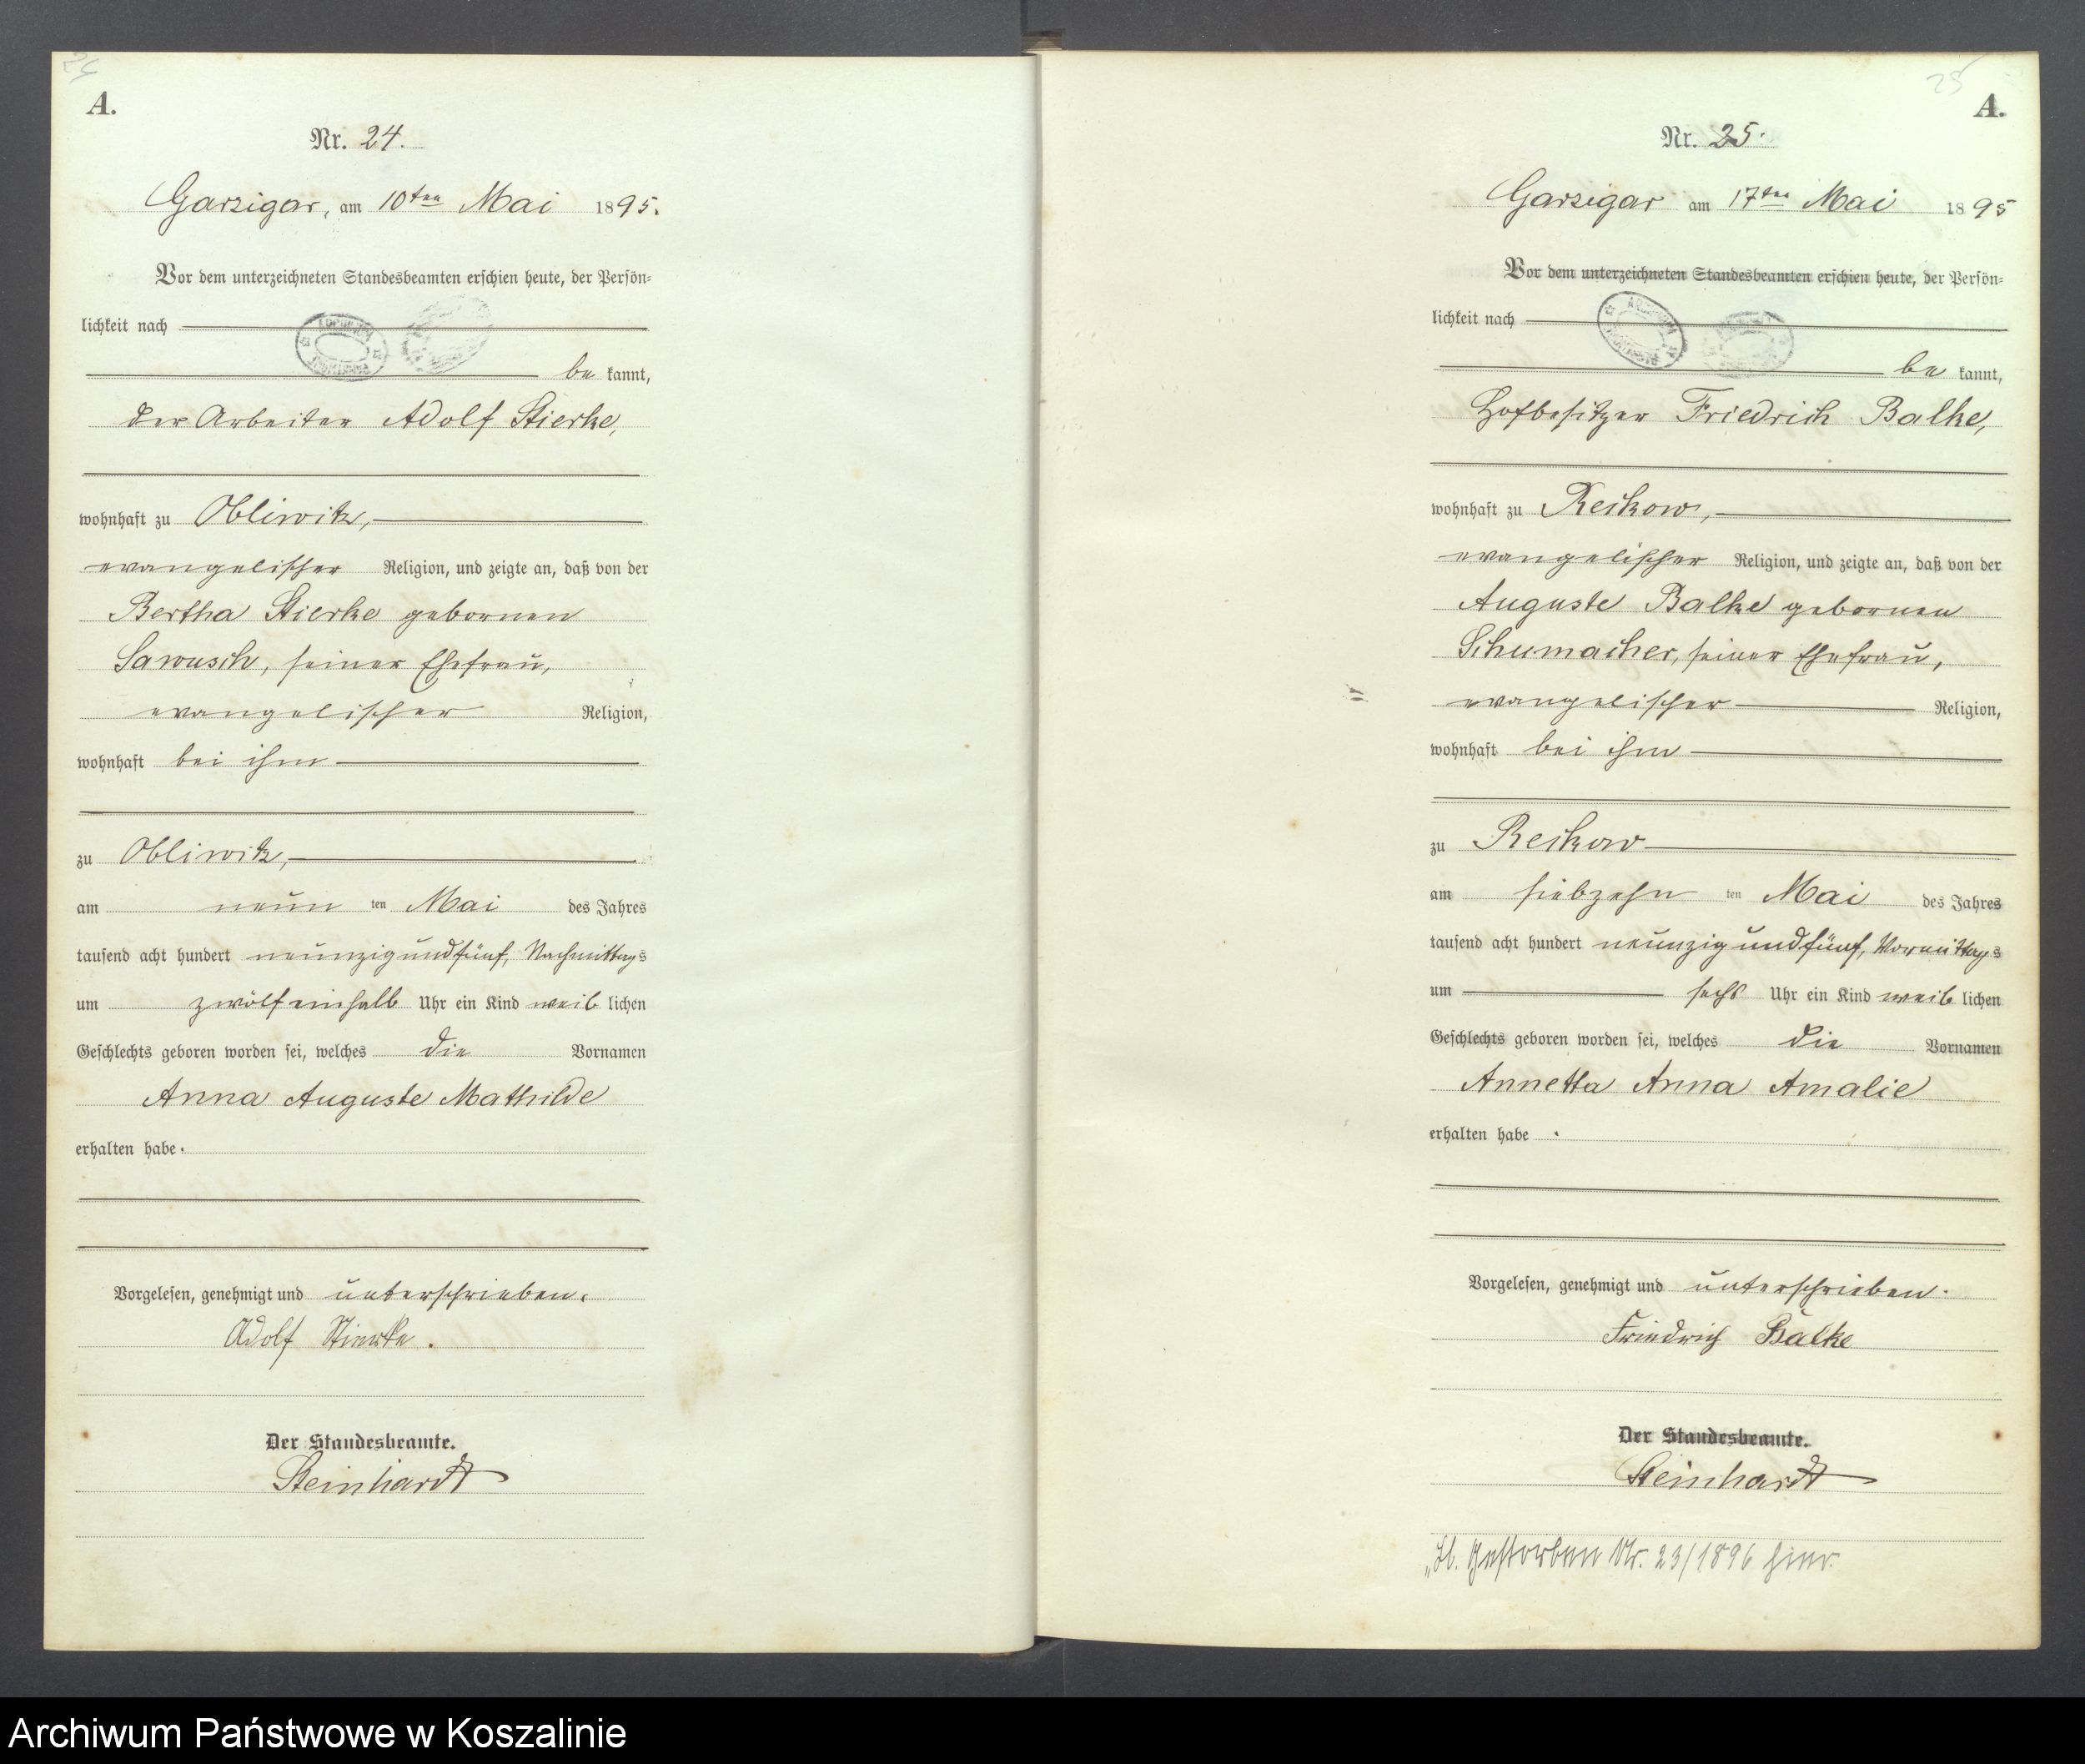 24
A.
Nr. 24.
Garzigar, am 10ten Mai 1895.
Vor dem unterzeichneten Standesbeamten erschien heute, der Persön-
lichkeit nach
be kannt,
der Arbeiter Adolf Stierke,
wohnhaft zu Obliwitz,
evangelischer Religion, und zeigte an, daß von der
Bertha Stierke gebornen
Sawusch, seiner Ehefrau,
evangelischer Religion,
wohnhaft bei ihm
zu Obliwitz,
am neun ten Mai des Jahres
tausend acht hundert neunzig und fünf, Nachmittags
um zwölf einhalb Uhr ein Kind weib lichen
Geschlechts geboren worden sei, welches die Vornamen
Anna Auguste Mathilde
erhalten habe.
Vorgelesen, genehmigt und unterschrieben.
Adolf Stierke.
Der Standesbeamte.
Steinhardt
25
A.
Nr. 25.
Garzigar am 17ten Mai 1895
Vor dem unterzeichneten Standesbeamten erschien heute, der Persön-
lichkeit nach
be kannt,
Hofbesitzer Friedrich Balke,
wohnhaft zu Reckow,
evangelischer Religion, und zeigte an, daß von der
Auguste Balke gebornen
Schumacher, seiner Ehefrau,
evangelischer Religion,
wohnhaft bei ihm
zu Reckow
am siebzehn ten Mai des Jahres
tausend acht hundert neunzig und fünf, Vormittags
um sechs Uhr ein Kind weib lichen
Geschlechts geboren worden sei, welches die Vornamen
Annetta Anna Amalie
erhalten habe.
Vorgelesen, genehmigt und unterschrieben.
Friedrich Balke
Der Standesbeamte.
Steinhardt
Gestorben Nr. 23/1896 hier.
Archiwum Państwowe w Koszalinie